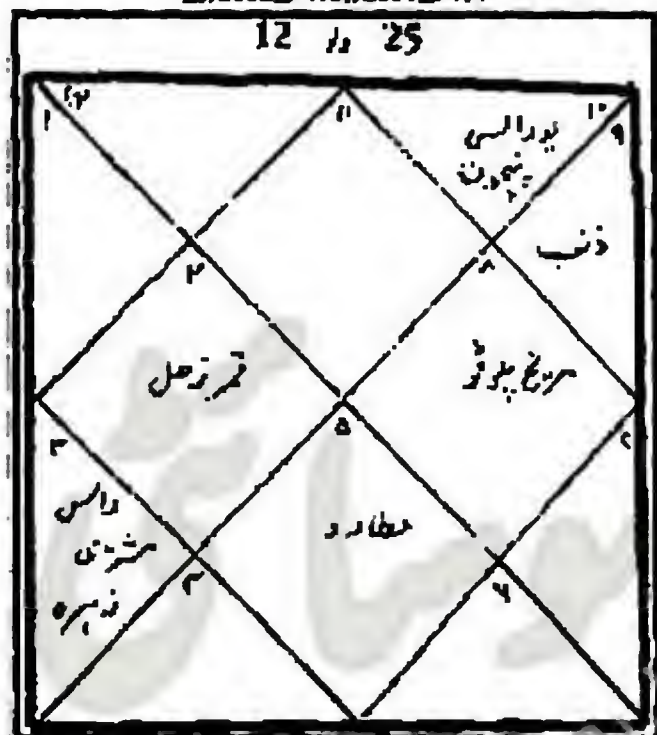 ۱۲ ۱۱ ۱۰
۱ ۹
یورانس
نیپچون
ذنب
۲ ۸
قمر زحل
مریخ پلوٹو
۳ ۵
راس
مشتری
زہرہ
عطارد
۴ ۶